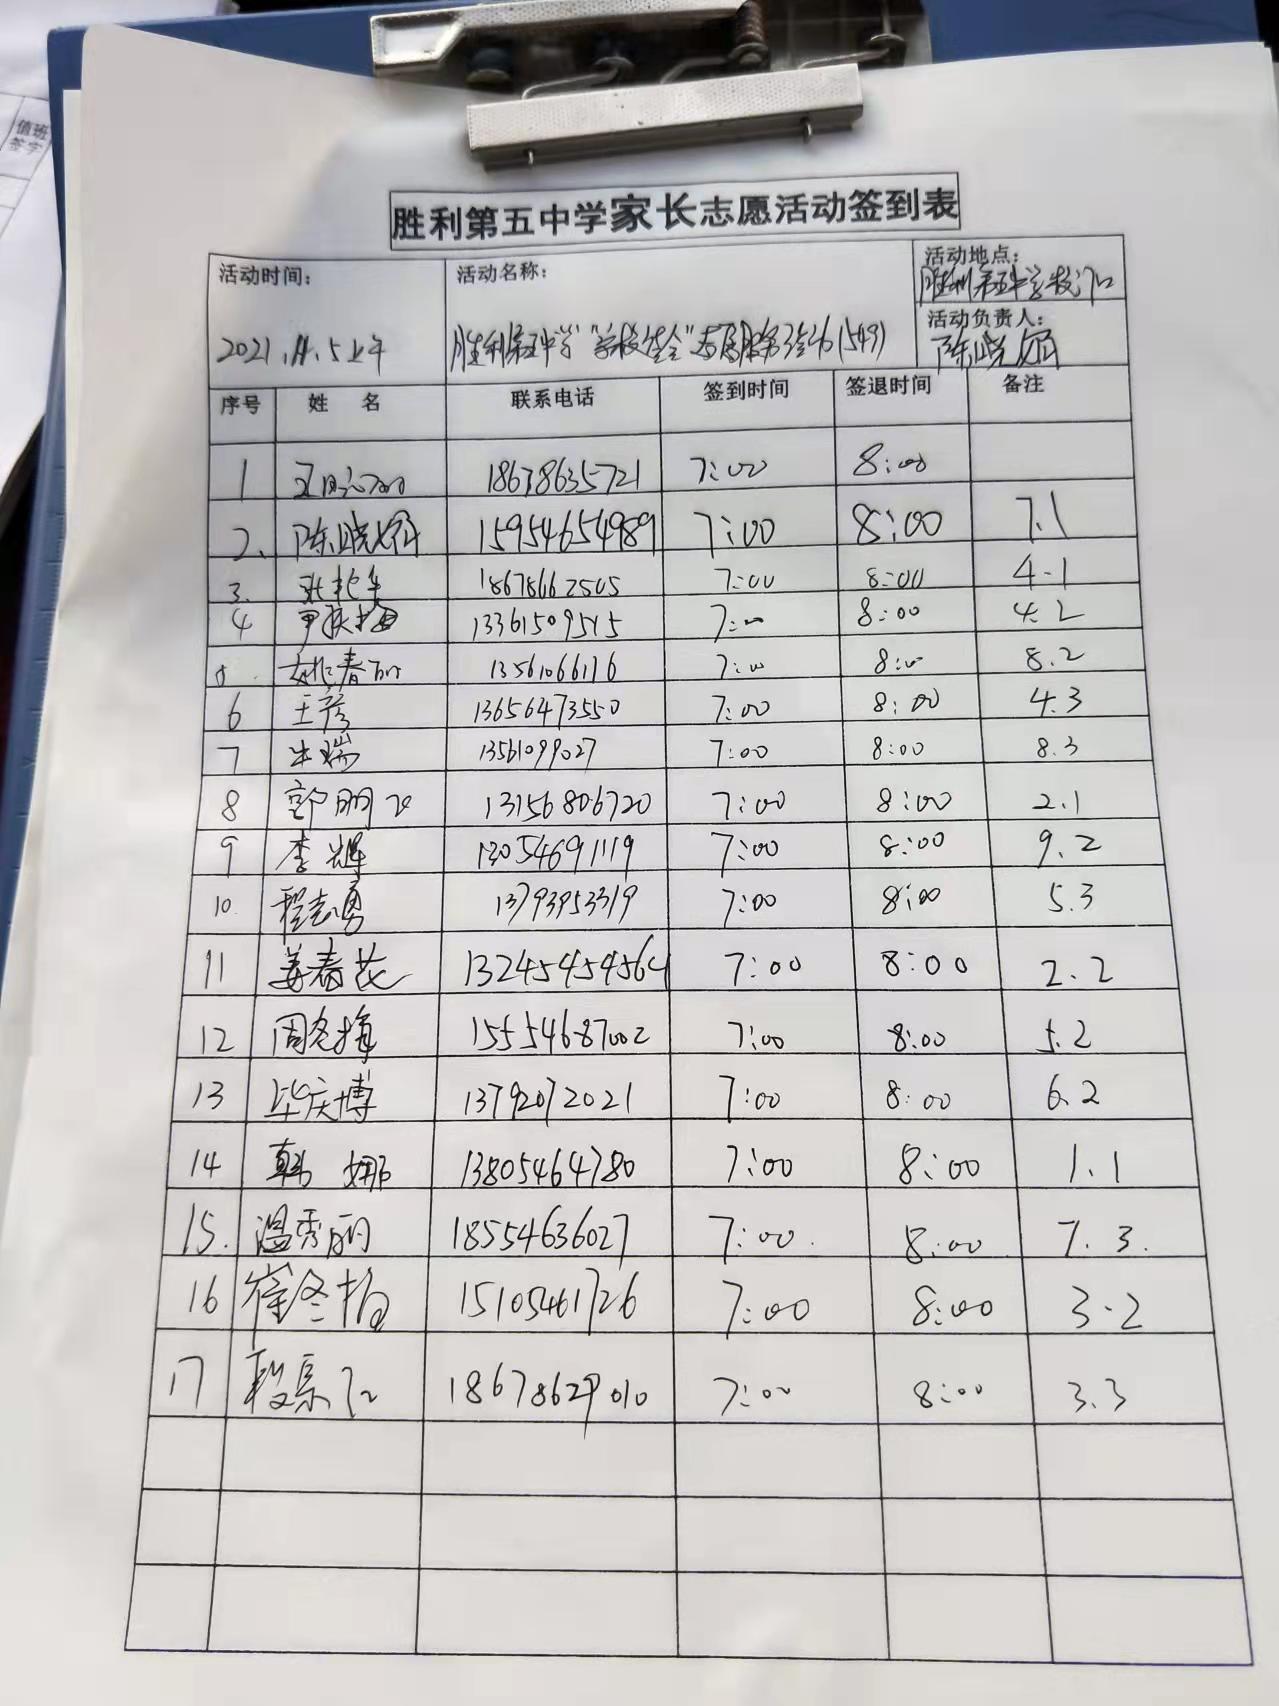 值班
签字
胜利第五中学家长志愿活动签到表
活动时间： 活动名称： 活动地点：
胜利第五中学校门口
活动负责人：
2021.11.5上午 胜利第五中学"学校 会"志愿服务 陈晓娟
序号 姓 名 联系电话 签到时间 签退时间 备注
1 18678635721 7:00 8:00
2、 陈晓娟 15954654989 7:00 8:00 7.1
3. 18678662505 7:00 8:00 4.1
4 13361509515 7:00 8:00 4.2
5. 姚春丽 13561066116 7:00 8:00 8.2
6 王彦 13656473550 7:00 8:00 4.3
7 牛瑞 13561099027 7:00 8:00 8.3
8 郭朋飞 13156806720 7:00 8:00 2.1
9 李辉 13054691119 7:00 8:00 9.2
10. 程志勇 13793953319 7:00 8:00 5.3
11 姜春花 13245454564 7:00 8:00 2.2
12 周冬梅 15554687002 7:00 8:00 5.2
13 毕庆博 13792072021 7:00 8:00 6.2
14 韩娜 13805464780 7:00 8:00 1.1
15. 温秀丽 18554636027 7:00. 8:00 7.3.
16 崔冬梅 15105461726 7:00 8:00 3.2
17 18678629010 7:00 8:00 3.3